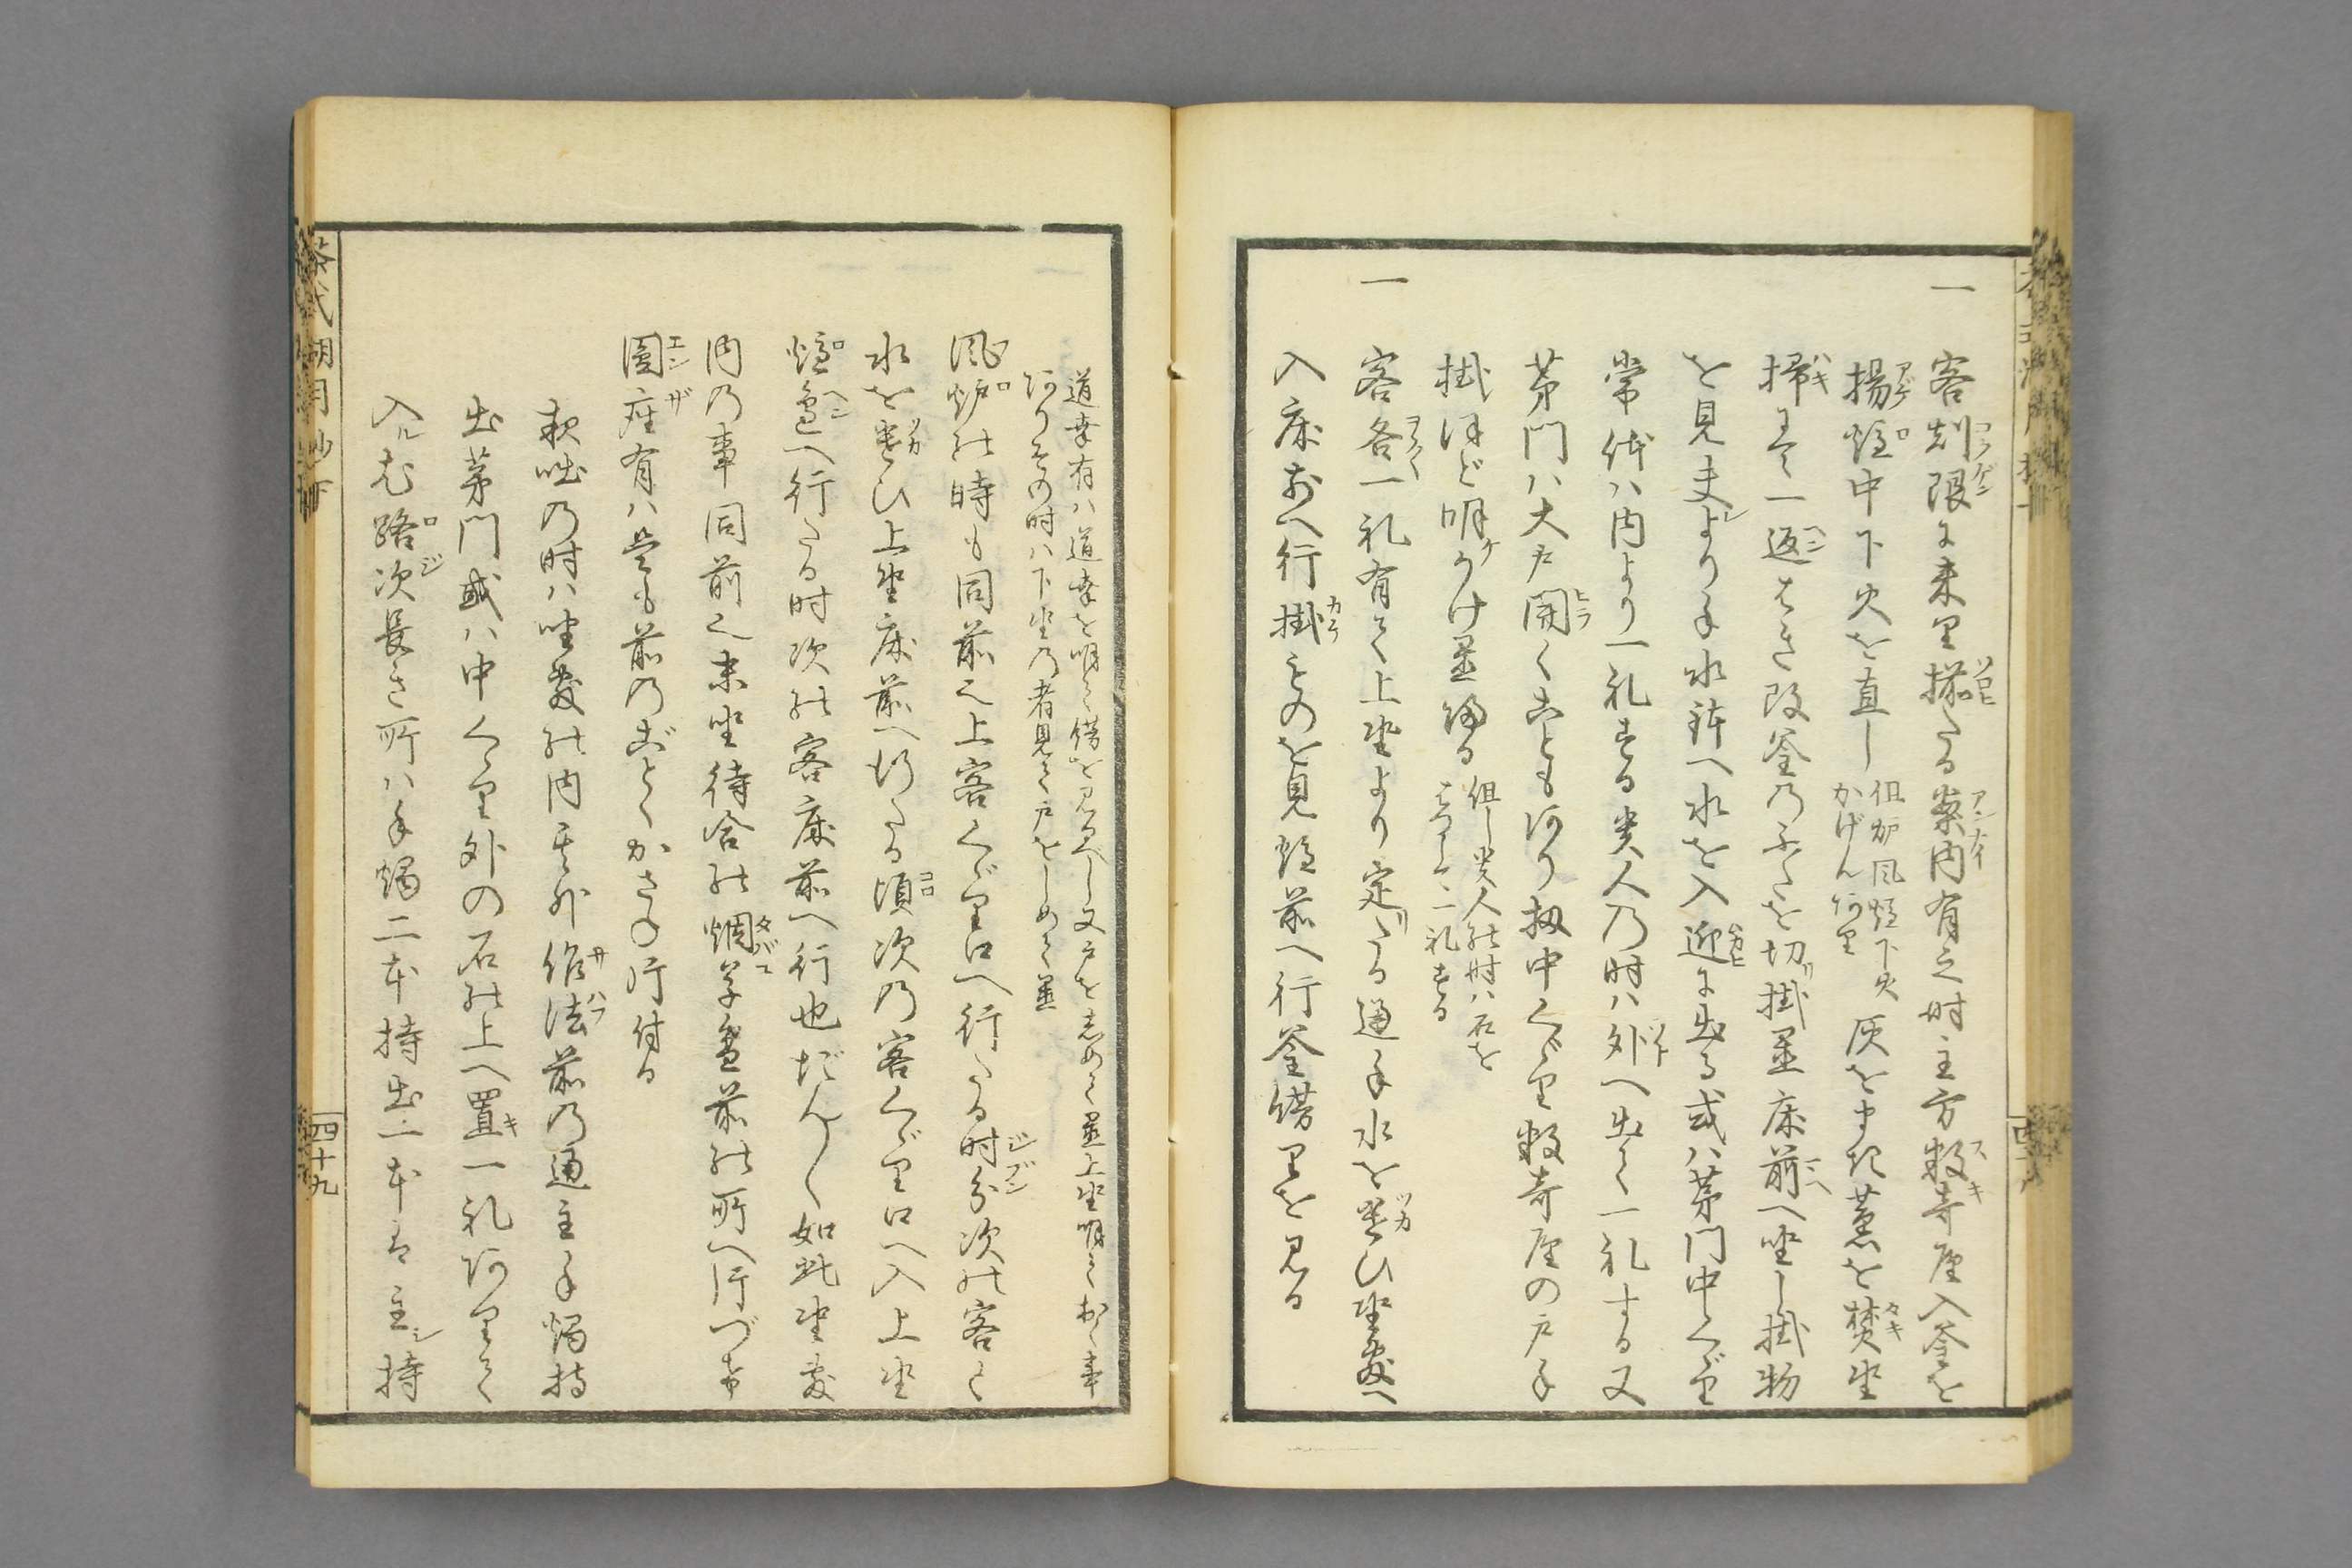 一 客刻限に来里揃たる案内有之時主方数寄屋入釜を
揚炉中下火を直し
但炉風炉下火
かげん有里
灰をまき薫を焚坐
掃にて一返はき改釜のふたを切掛置床前へ坐し掛物
を見夫より手水鉢へ水を入迎に出る或ハ茅門中くゞり
常体ハ内より一礼する貴人の时ハ外へ出て一礼する又
茅門ハ大戸開くことも有り扨中くゞり数寄屋の戸手
掛ほど明かけ置帰る
但し貴人の时ハ石を
二礼する
一 客各一礼有て上坐より定たる通手水を遣ひ坐敷へ
入床前へ行掛ものを見炉前へ行釜錺里を見る
道幸有ハ道幸を明て錺を見るべし又戸をしめて置上坐明ておく事
有りその时ハ下坐の者見て戸をしめて置
風炉の時も同前之上客くゞり口へ行たる时分次の客手
水を遣ひ上坐床前へ行たる頃次の客くゞり口へ入上坐
炉辺へ行たる时次の客床前へ行也だん〳〵如此坐敷
内の事同前之末坐待合の烟草盆前の所へ片づけ
圓座有ハ是も前のごとくかさね片付る
夜咄の时ハ坐敷の内其外作法前の通主手燭持
出茅門或ハ中くゞり外の石の上へ置一礼有里て
入ル尤路次長き所ハ手燭二本持出一本は主シ持
茶式湖月抄
四十九